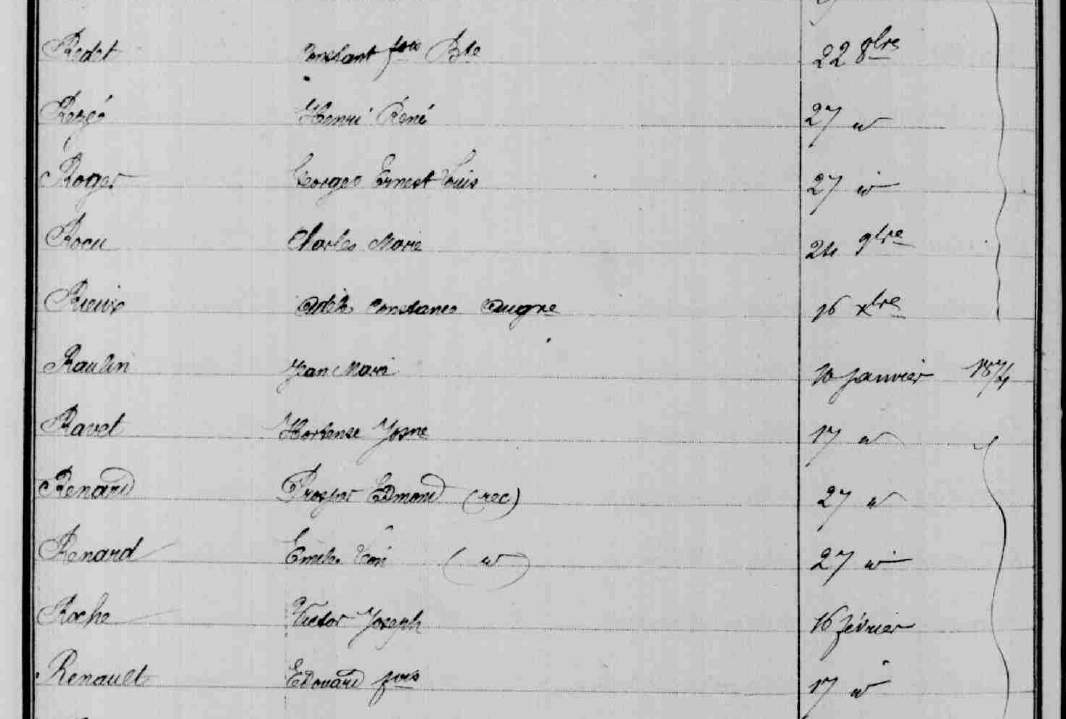 Redet Constant fois Bte 22 8bre
Rezé Henri René 27 "
Roger Georges Ernest Louis 27 "
Rocu Charles Marie 24 9bre
Constance 16 xbre
Raulin Jean Marie 10 janvier 1874
Ravet Hortense Jphne 17 "
Renard Prosper Edmond (rec) 27 "
Renard Emile Léon ( " ) 27 "
Roche Victor Joseph 16 février
Renault Edouard fois 17 "